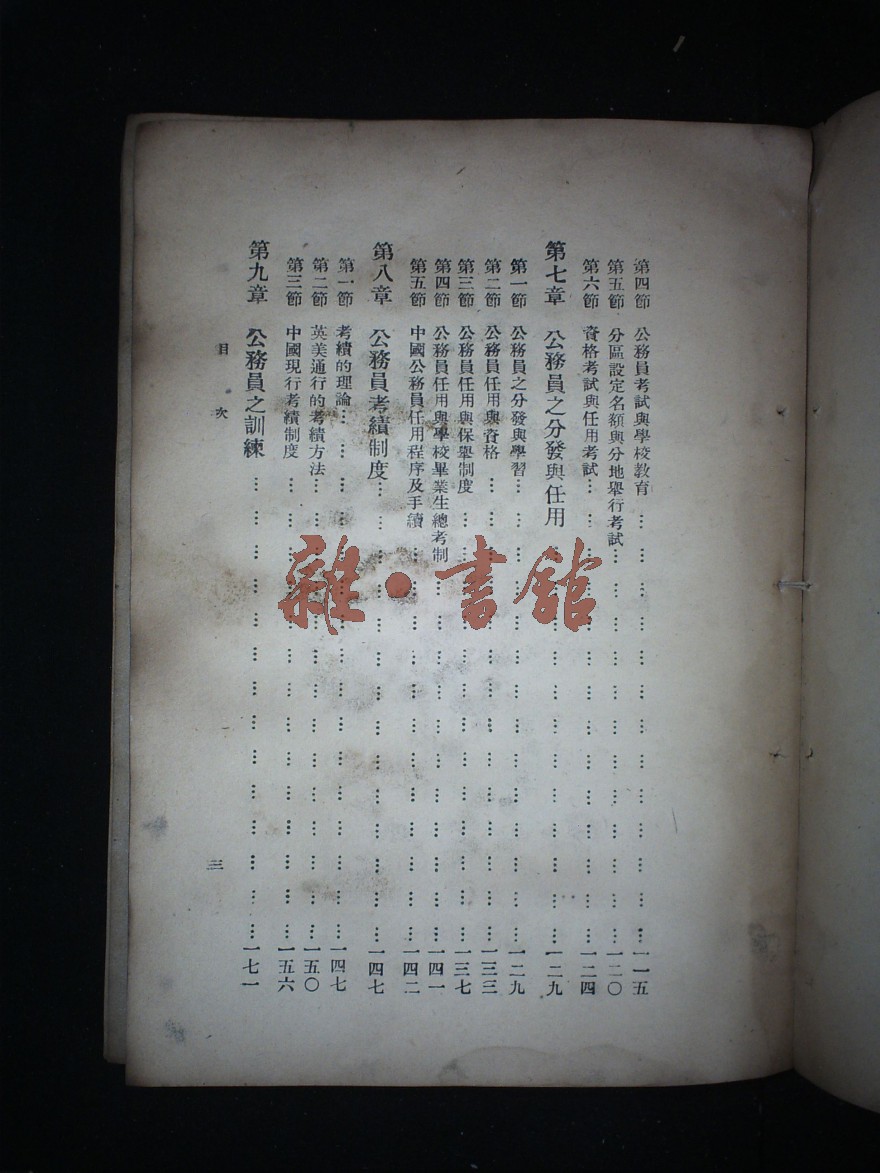 第四節 公務員考試與學校教育………………………一一五
第五節 分區設定名額與分地舉行考試………………………一二〇
第六節 資格考試與任用考試………………………一二四
第七章 公務員之分發與任用………………………一二九
第一節 公務員之分發與學習………………………一二九
第二節 公務員任用與資格………………………一三三
第三節 公務員任用與保舉制度………………………一三七
第四節 公務員任用與學校畢業生總考制………………………一四一
第五節 中國公務員任用程序及手續………………………一四二
第八章 公務員考績制度………………………一四七
第一節 考績的理論………………………一四七
第二節 英美通行的考績方法………………………一五〇
第三節 中國現行考績制度………………………一五六
第九章 公務員之訓練………………………一七一
目次 三
雜·書館